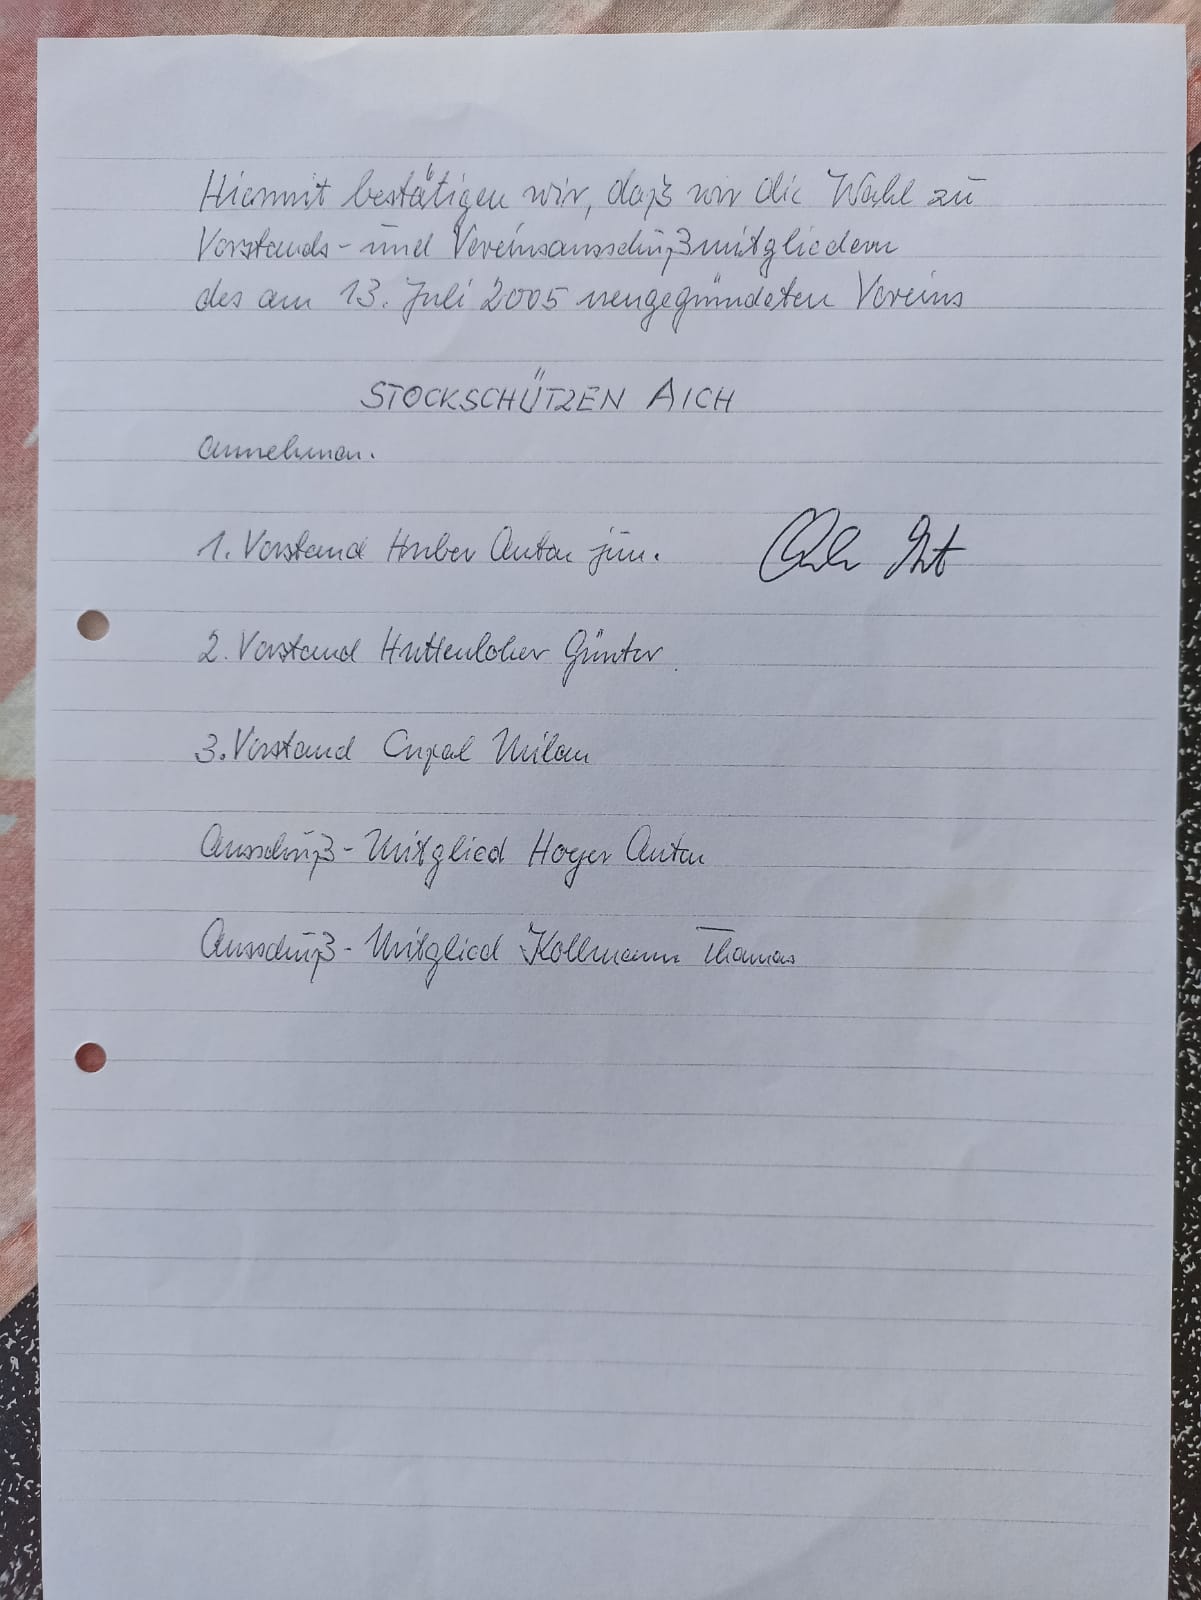 Hiermit bestätigen wir, daß wir die Wahl zu
Vorstands- und Vereinsausschußmitgliedern
des am 13. Juli 2005 neugegründeten Vereins
STOCKSCHÜTZEN AICH
annehmen.
1. Vorstand Huber Anton jun.
2. Vorstand Huttenlocher Günter
3. Vorstand Cupal Milan
Ausschuß-Mitglied Hoyer Anton
Ausschuß-Mitglied Kollmann Thomas